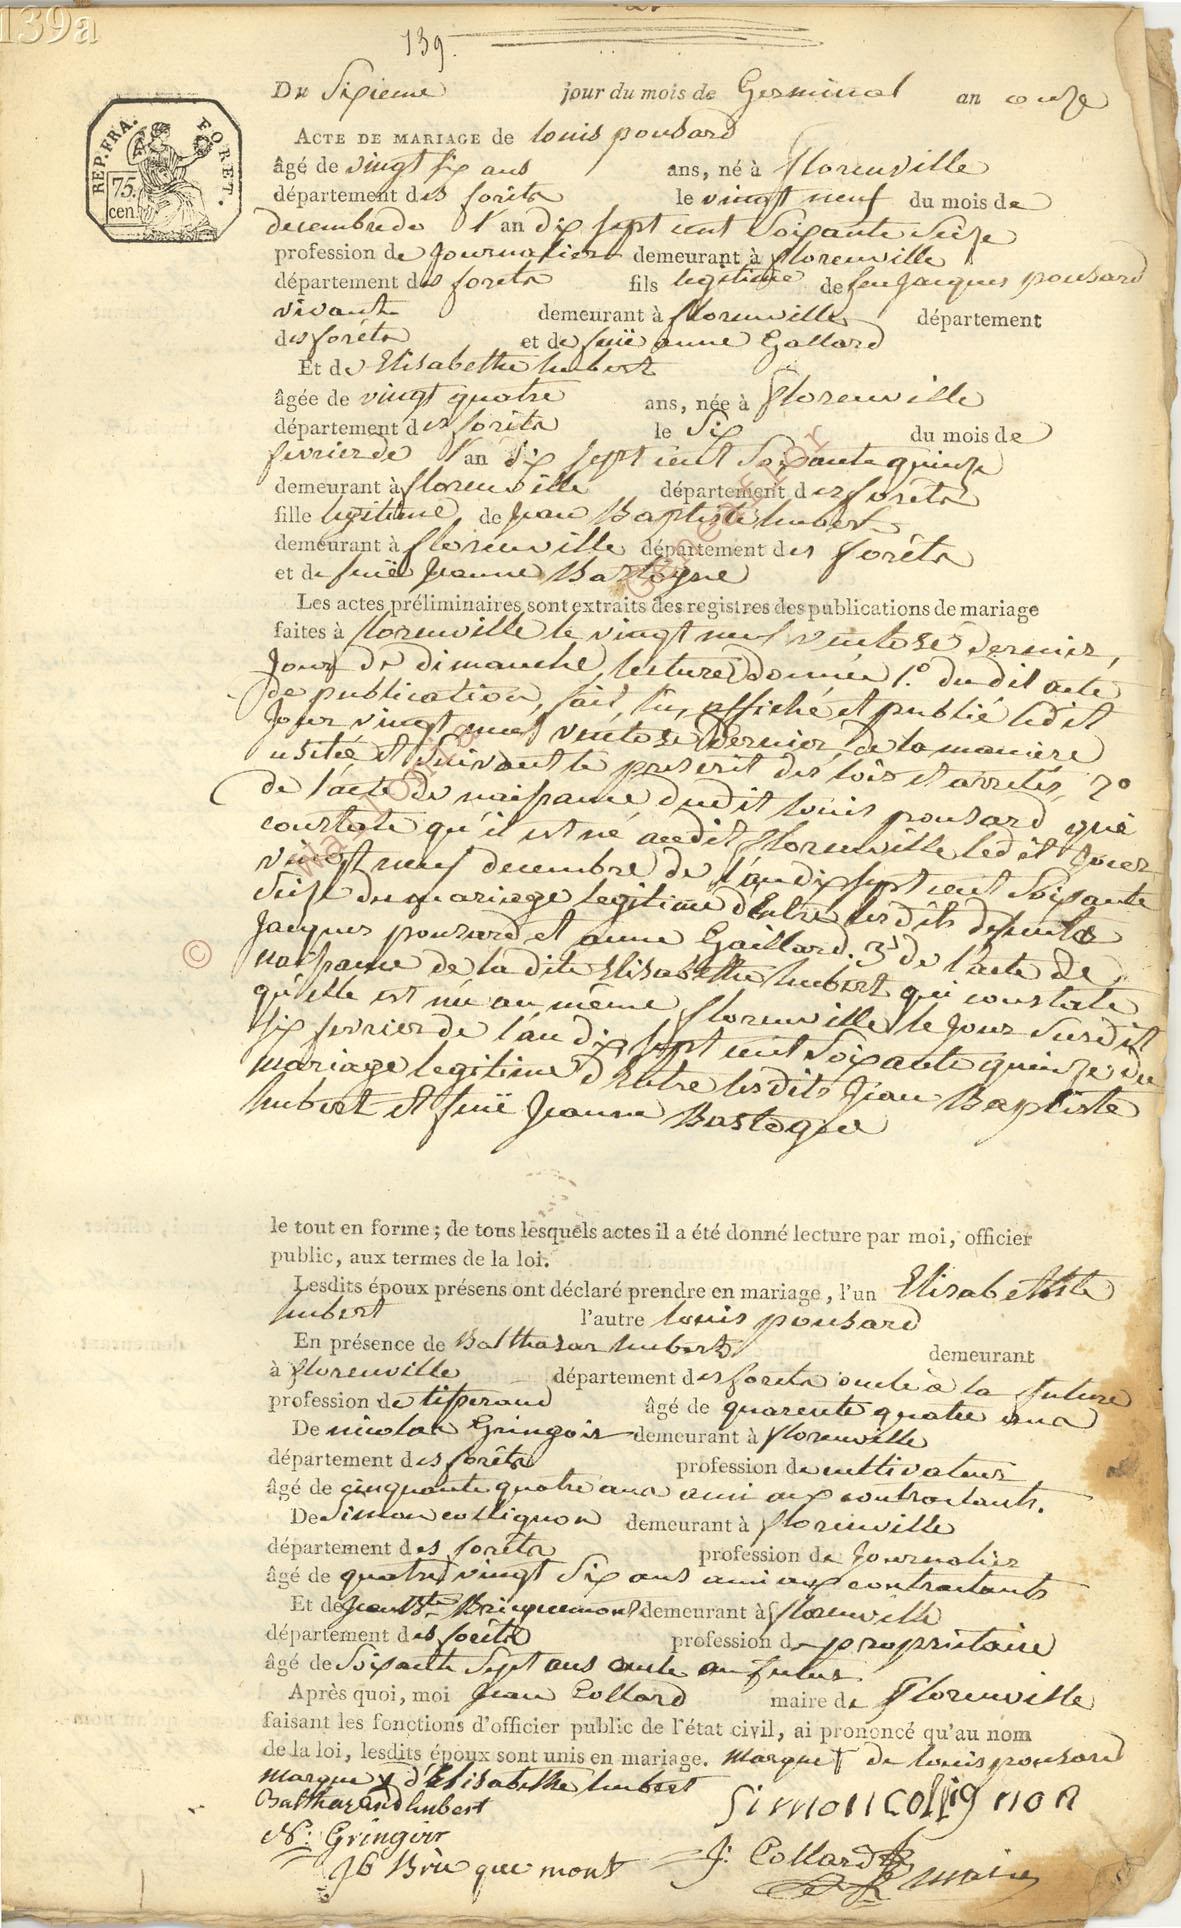 139a
139.
REP. FRA. FORET.
75. cen.
Du Sixieme jour du mois de Germinal an onze
ACTE DE MARIAGE de louis pousard
âgé de vingt six ans ans, né à florenville
département des forêts le vingt neuf du mois de
decembre de l'an dix sept cent Soixante Seize
profession de Journalier demeurant à florenville
département des forêts fils legitime de feu Jacques pousard
vivant demeurant à florenville département
des forêts et de feuë anne Gallard
Et de Elisabethe hubert
âgée de vingt quatre ans, née à florenville
département des forêts le Six du mois de
fevrier de l'an dix sept cent Soixante quinze
demeurant à florenville département des forêts
fille legitime de Jean Baptiste hubert
demeurant à florenville département des forêts
et de feuë Jeanne Bastogne
Les actes préliminaires sont extraits des registres des publications de mariage
faites à florenville le vingt neuf ventose dernier,
Jour de dimanche, lecture donnée 1.º du dit acte
de publication, fait, lu, affiché et publié ledit
Jour vingt neuf ventose dernier, de la maniere
usitée et Suivant le prescrit des loîs et arretés, 2º
de l'acte de naissance dudit louis pousard qui
constate qu'il est né audit florenville ledit Jour
vingt neuf decembre de l'an dix sept cent Soixante
Seize du mariage legitime d'Entre lesdits defunts
Jacques pousard et anne Gaillard. 3º de l'acte de
naissance de la dite Elisabethe hubert qui constate
qu'elle est née au même florenville le Jour Susdit
six fevrier de l'an dix sept cent Soixante quinze, du
mariage legitime d'Entre lesdits Jean Baptiste
hubert et feuë Jeanne Bastogne
le tout en forme; de tous lesquels actes il a été donné lecture par moi, officier
public, aux termes de la loi.
Lesdits époux présens ont déclaré prendre en mariage, l'un Elisabethte
hubert l'autre louis pousard
En présence de Balthasar hubert demeurant
à florenville département des forêts oncle à la future
profession de tisserand âgé de quarente quatre ans
De nicolas Gringoir demeurant à florenville
département des forêts profession de cultivateur
âgé de cinquante quatre ans ami aux contractants.
De Simon collignon demeurant à florenville
département des forêts profession de Journalier
âgé de quatre vingt Six ans ami aux contractants
Et de Jean Bte Bricquemont demeurant à florenville
département des forêts profession de propriétaire
âgé de Soixante Sept ans oncle au futur
Après quoi, moi Jean Collard maire de Florenville
faisant les fonctions d'officier public de l'état civil, ai prononcé qu'au nom
de la loi, lesdits époux sont unis en mariage. marque † de louis pousard
marque x d'Elisabethe hubert
Balthazard hubert Simon collignon
N: Gringoir
JB Bricquemont J: Collard maire
© Wallonia GeneaFLor